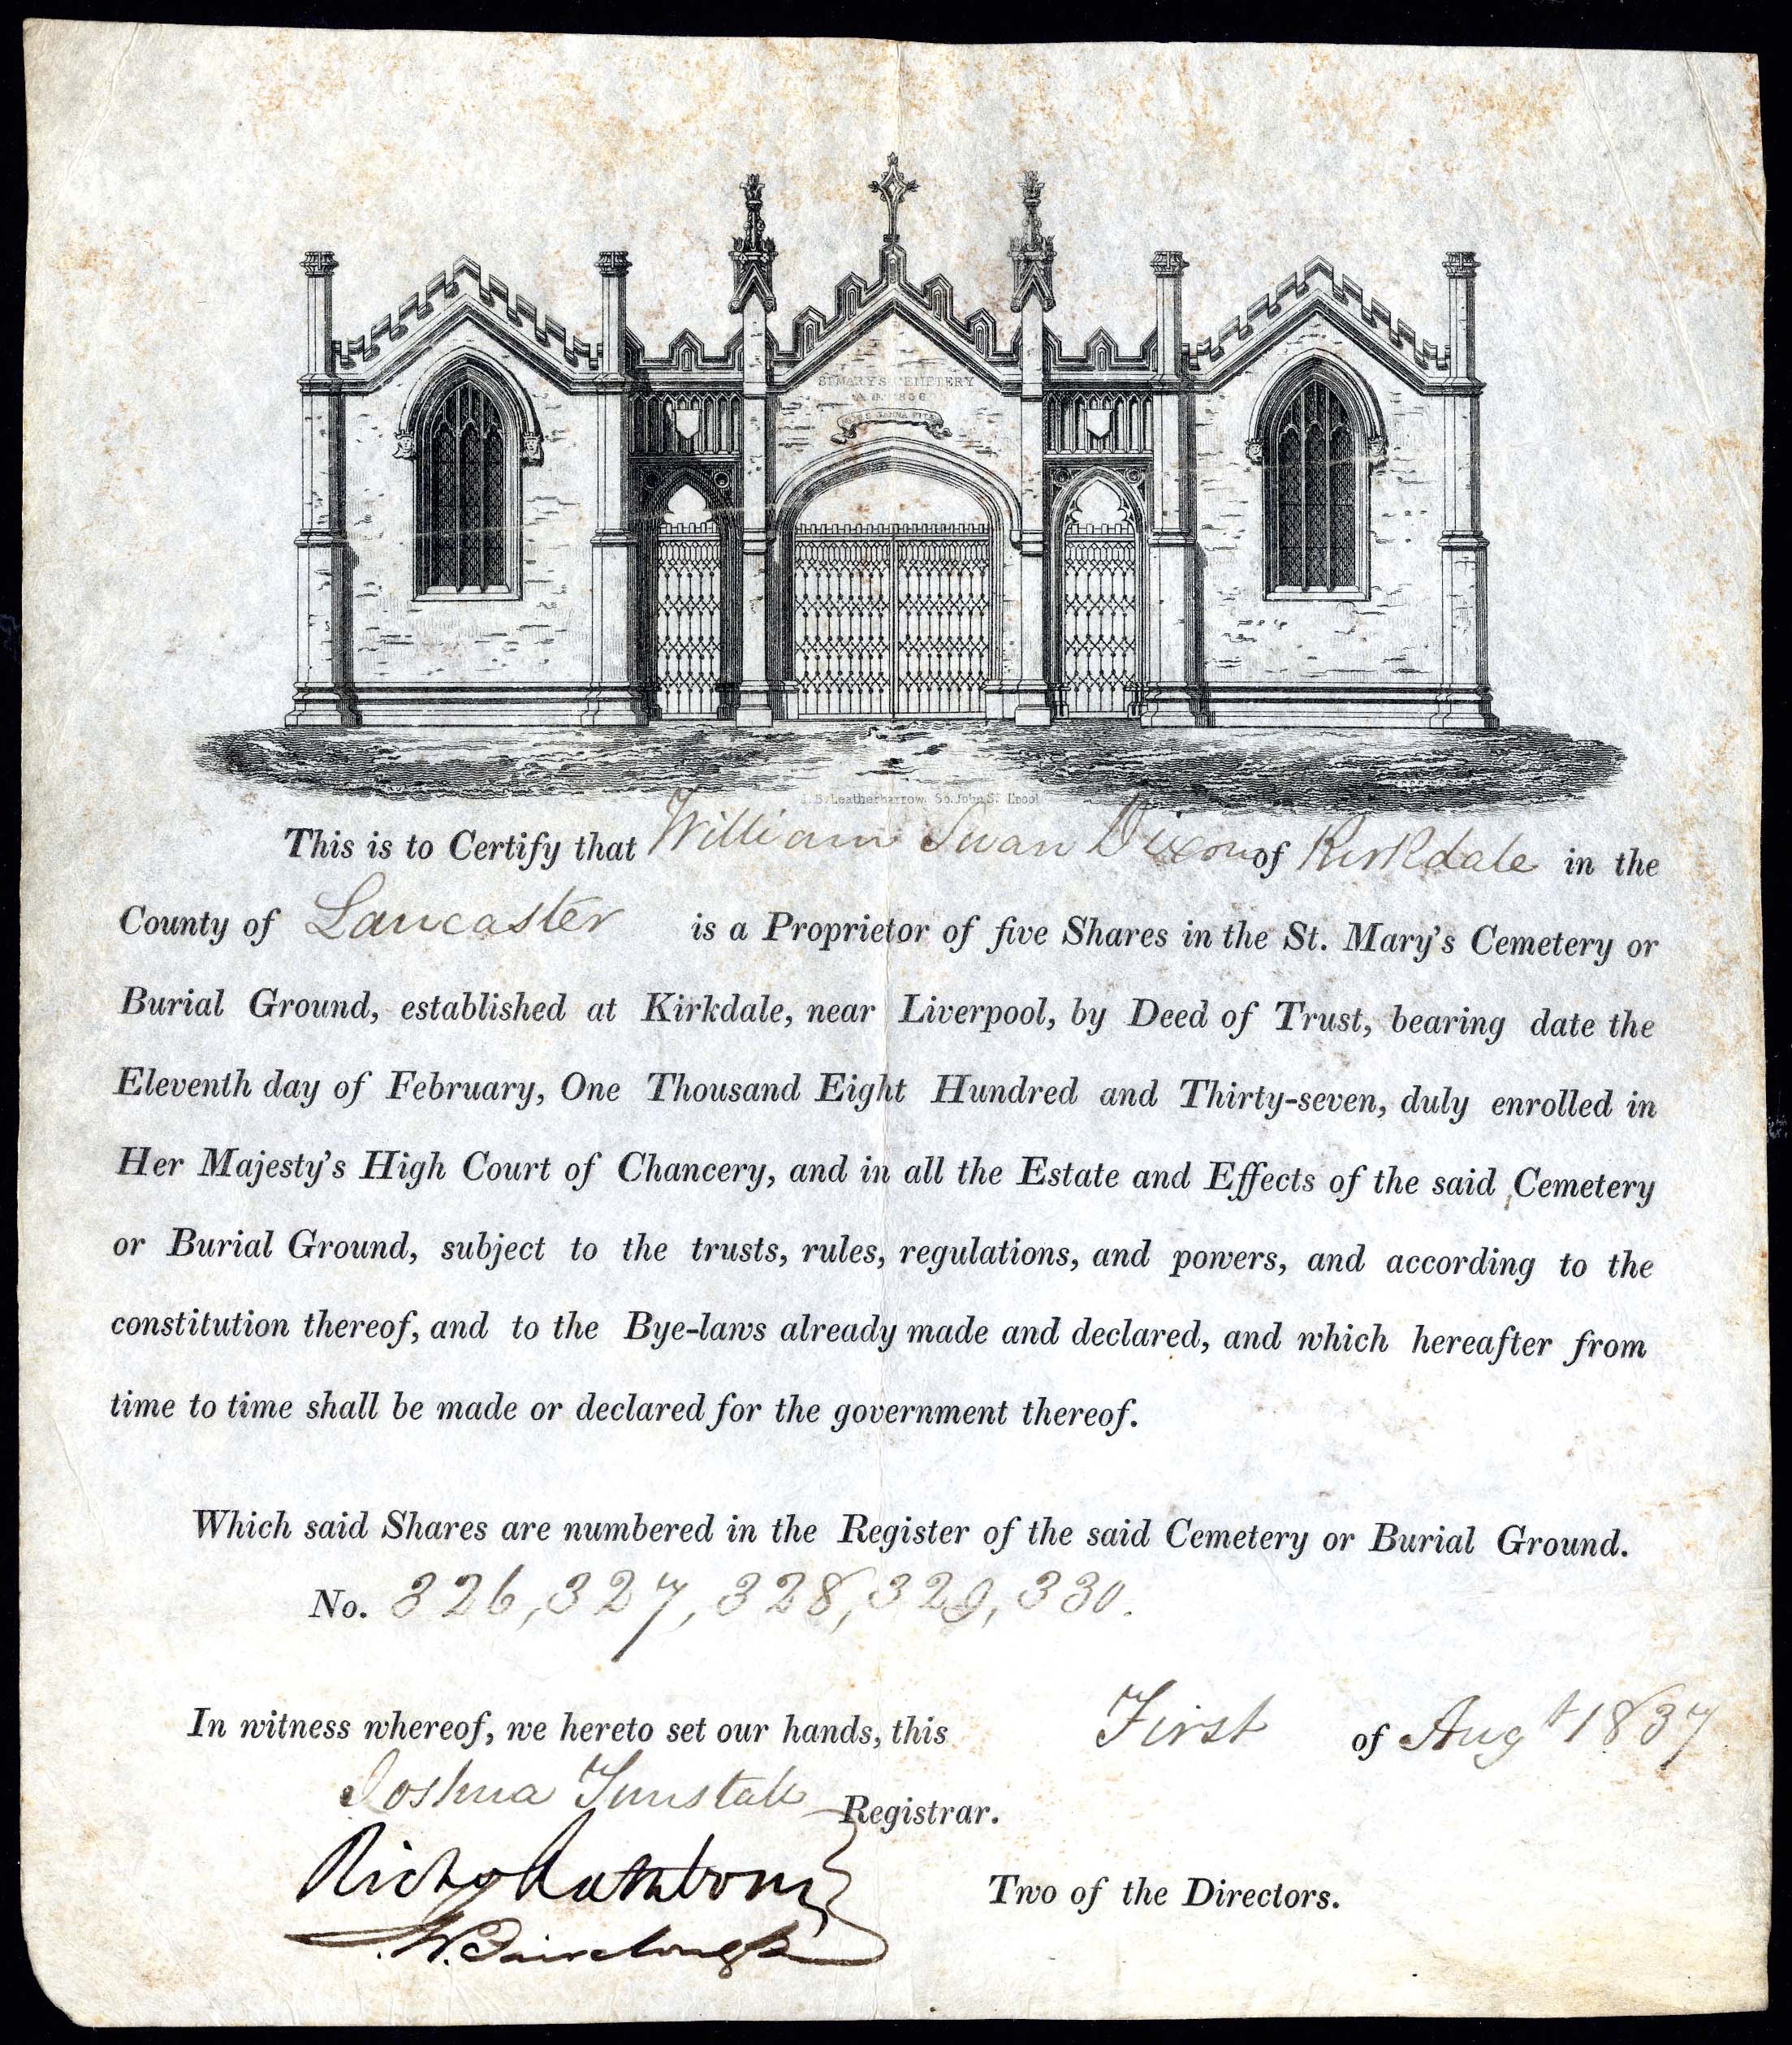 ST MARY'S CEMETERY
A.D. 1836
J. B. Leatherbarrow, So. John St. Lpool
This is to Certify that William Swan Dixon of Kirkdale in the
County of Lancaster is a Proprietor of five Shares in the St. Mary's Cemetery or
Burial Ground, established at Kirkdale, near Liverpool, by Deed of Trust, bearing date the
Eleventh day of February, One Thousand Eight Hundred and Thirty-seven, duly enrolled in
Her Majesty's High Court of Chancery, and in all the Estate and Effects of the said Cemetery
or Burial Ground, subject to the trusts, rules, regulations, and powers, and according to the
constitution thereof, and to the Bye-laws already made and declared, and which hereafter from
time to time shall be made or declared for the government thereof.
Which said Shares are numbered in the Register of the said Cemetery or Burial Ground.
No. 326, 327, 328, 329, 330.
In witness whereof, we hereto set our hands, this First of Augt 1837
Joshua Tunstall Registrar.
Richd Rathbone
Two of the Directors.
W. Fairclough